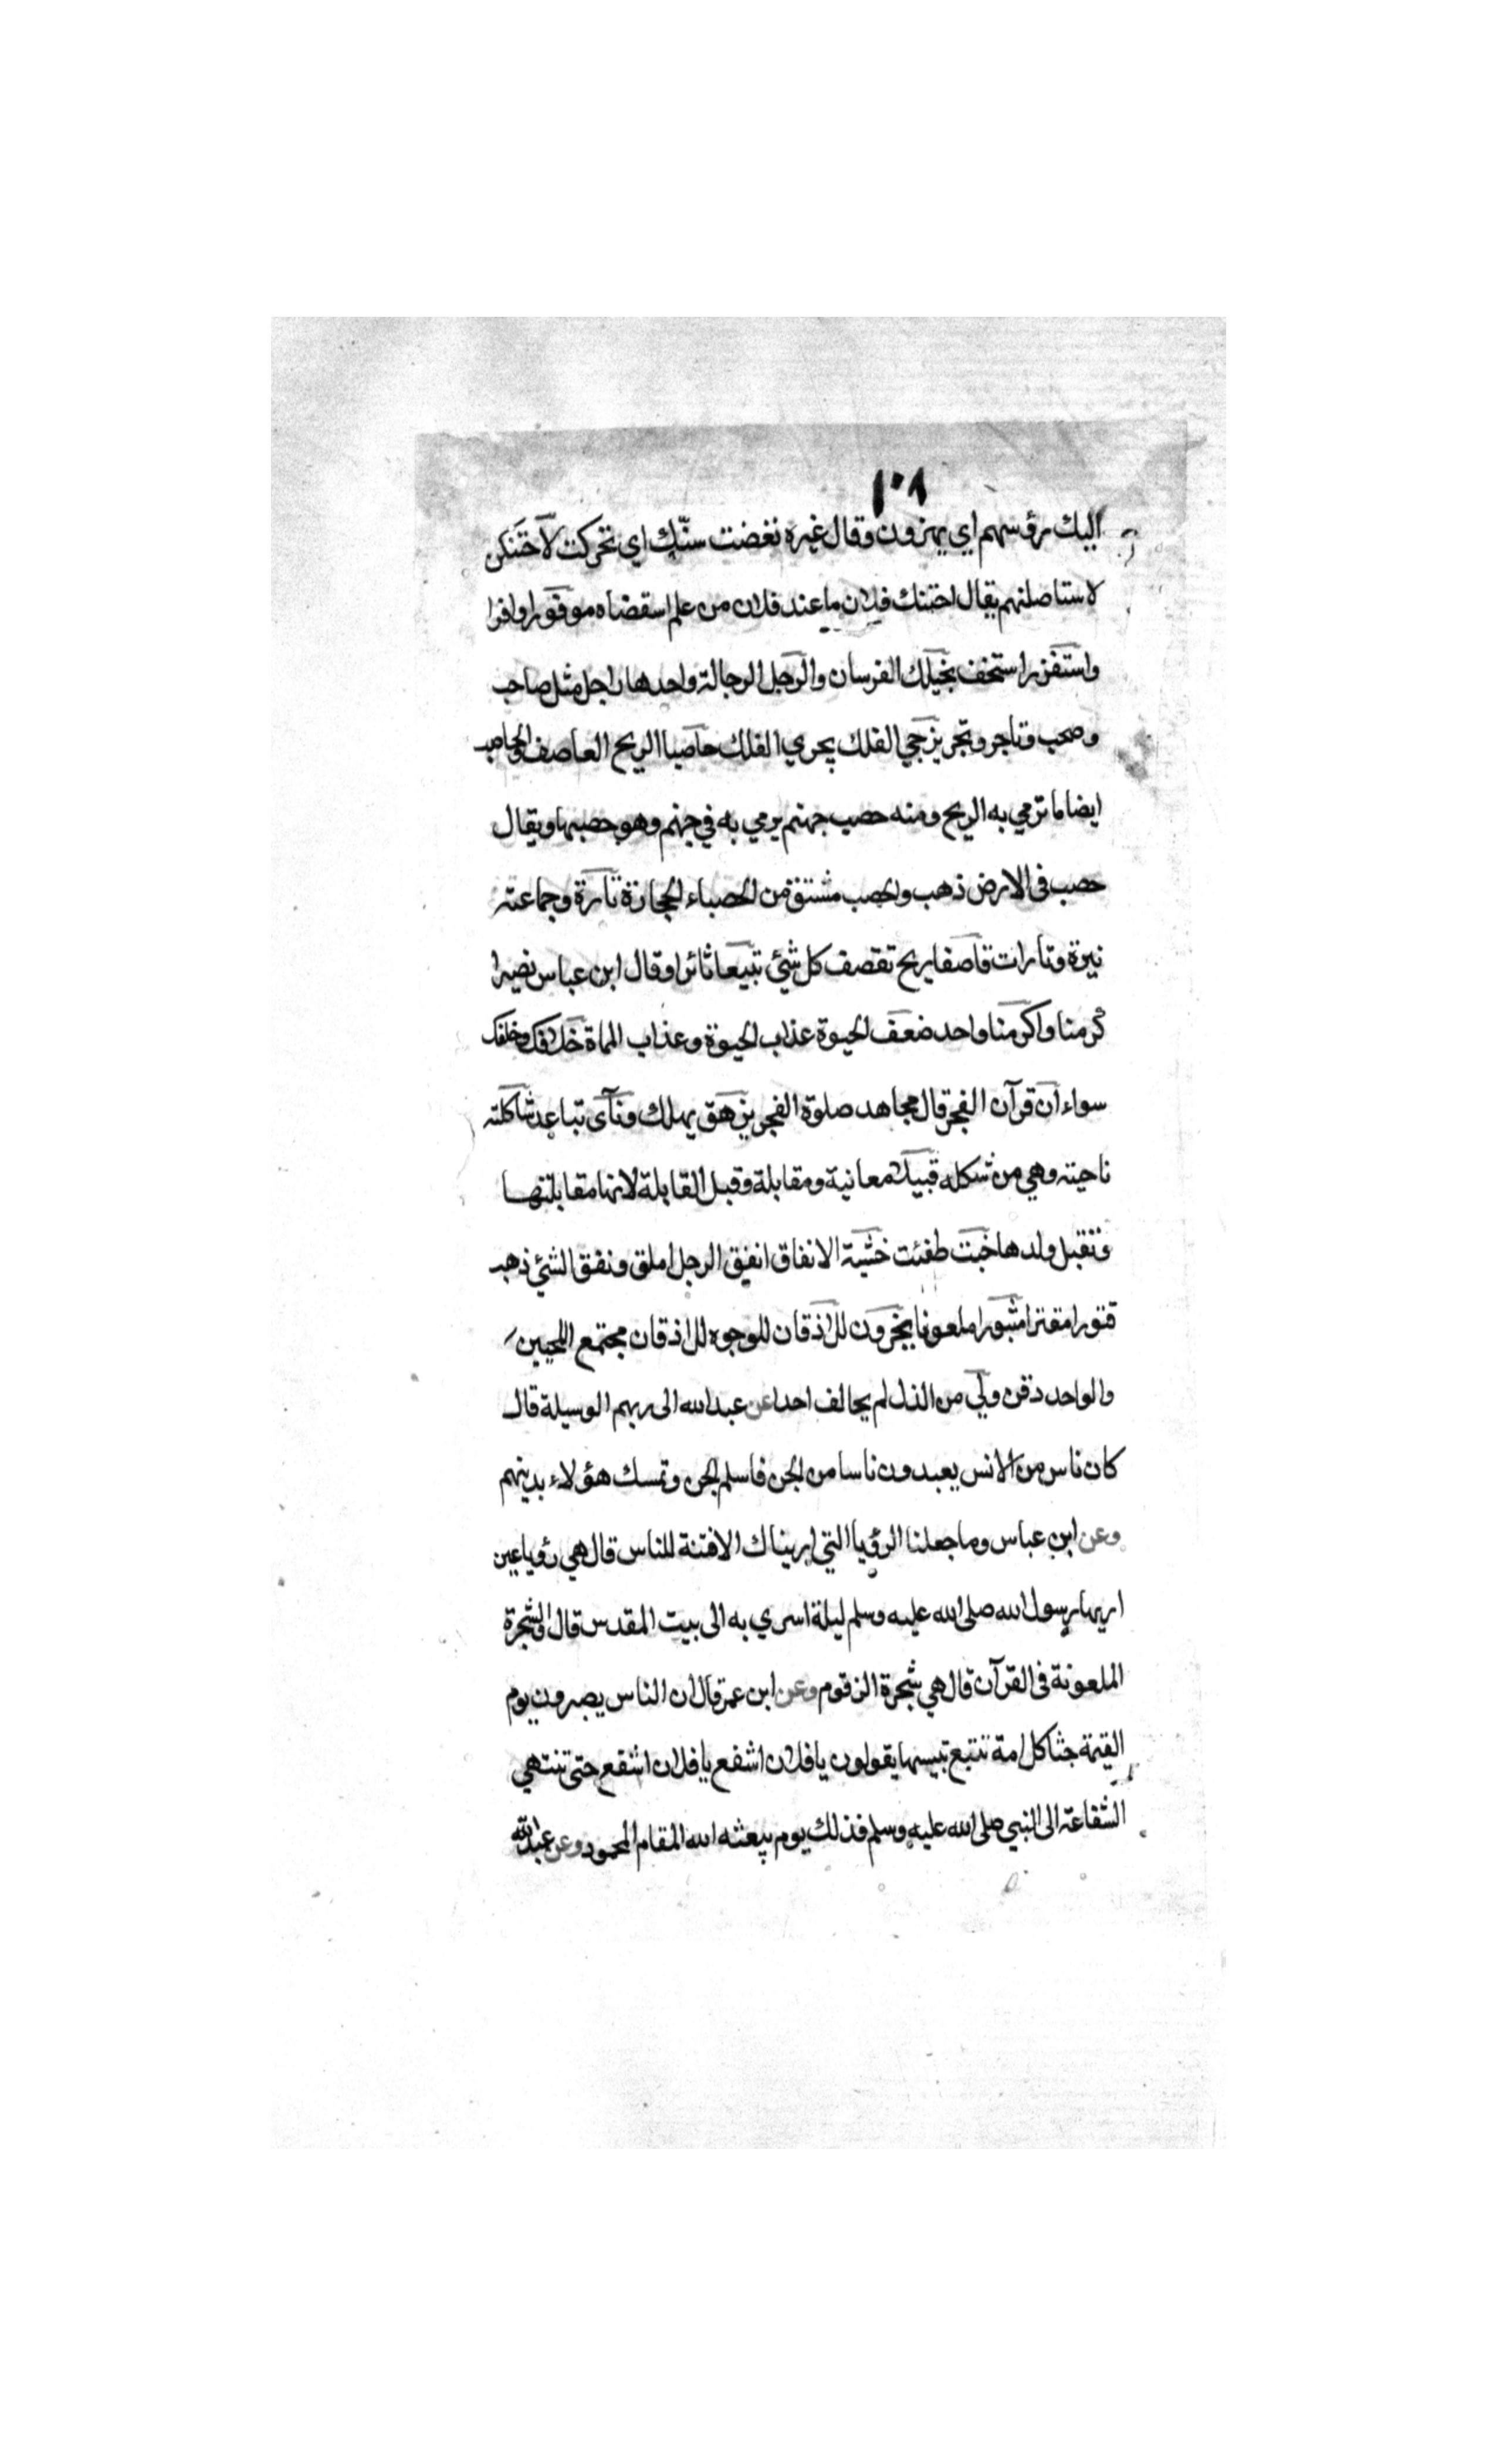 ١٠٨
اليك رؤسهم اي يهزون وقال غيره نغضت سنّك اي تحركت لاحتنكن
لاستاصلنهم يقال احتنك فلان ما عند فلان من علم استقضاه موفورا وافرا
واستفزز استخف بخيلك الفرسان والرجل الرجالة واحدها راجل مثل صاحب
وصحب وتاجر وتجر يزجي الفلك يجري الفلك حاصبا الريح العاصف والحاصب
ايضا ما ترمي به الريح ومنه حصب جهنم يرمي به في جهنم وهو حصبها ويقال
حصب في الارض ذهب والحصب مشتق من الحصباء الحجارة تارة وجماعته
تيرة وتارات قاصفا ريح تقصف كل شئ تبيعا ثائرا وقال ابن عباس نصيرا
كرمنا واكرمنا واحد ضعف الحيوة عذاب الحيوة وعذاب المماة خلافك وخلفك
سواء ان قرآن الفجر قال مجاهد صلوة الفجر يزهق يهلك ونآى تباعد شاكلته
ناحيته وهي من شكله قبيلا معاينة ومقابلة وقبل القابلة لانها مقابلتها
وتقبل ولدها خبت طفئت خشية الانفاق انفق الرجل املق ونفق الشئ ذهب
قتورا مقترا مثبورا ملعونا يخرون للاذقان للوجوه للاذقان مجتمع اللحيين
والواحد ذقن ولي من الذل لم يحالف احدا عن عبد الله الى ربهم الوسيلة قال
كان ناس من الانس يعبدون ناسا من الجن فاسلم الجن وتمسك هؤلاء بدينهم
وعن ابن عباس وما جعلنا الرؤيا التي اريناك الا فتنة للناس قال هي رؤيا عين
اريها رسول الله صلى الله عليه وسلم ليلة اسري به الى بيت المقدس قال والشجرة
الملعونة في القرآن قال هي شجرة الزقوم وعن ابن عمر قال ان الناس يصيرون يوم
القيمة جثا كل امة تتبع نبيها يقولون يا فلان اشفع يا فلان اشفع حتى تنتهي
الشفاعة الى النبي صلى الله عليه وسلم فذلك يوم يبعثه الله المقام المحمود وعن عبد الله